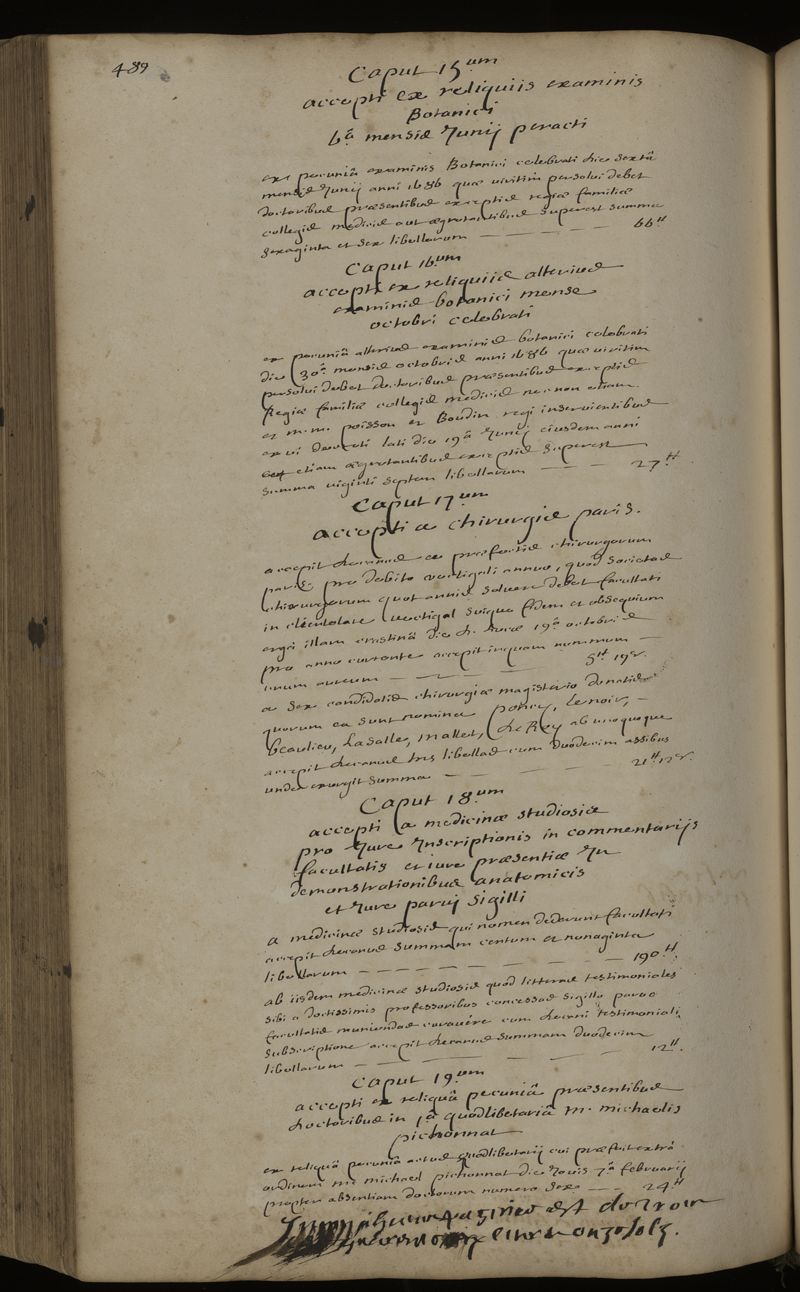 489
Caput 15um
accepti ex reliquiis examinis
Botanici
6a mensis Junij peracti
ex pecuniâ examinis Botanici celebrati die sextâ
mensis Junij anni 1686 quæ viritim persolvi debet
doctoribus præsentibus exceptis regiæ familiæ
collegis medicis aut ægrotantibus superest summa
sexaginta et sex libellarum — 66tt
Caput 16um
accepti ex reliquiis alterius
examinis botanici mense
octobri celebrati
ex pecuniâ alterius examinis botanici celebrati
die 30a mensis octobris anni 1686 quæ viritim
persolvi debet doctoribus præsentibus exceptis
Regiæ familiæ collegis medicis nec non etiam
et m.m. poisson et Boudin regi inservientibus
ex vi decreti lati die 19a Junij eiusdem anni
etiam ægrotantibus exceptis superest
summa viginti septem libellarum — 27tt
Caput 17um
accepti a chirurgis paris.
accepit decanus a præfectis chirurgorum
paris. pro debito vectigali annuo, quod societas
chirurgorum quot annis solvere debet facultati
in clientelare vectigal suique fidem et obsequium
erga illam crastinâ die d. Lucæ 19a octobris
pro anno currente accepit inquam nummum —
unum aureum — 5tt 19s.
a sex candidatis chirurgiæ magisterio donatis
quorum ea sunt nomina poncy, Lenoir, —
Beaulieu, Lasalle, mallet, Le Rey ab unoquoque
accepit decanus tres libellas cum duodecim assibus
unde exurgit summa — 21tt 12s.
Caput 18um
accepti a medicinæ studiosis
pro Jure Inscriptionis in commentarijs
facultatis et iure præsentiæ In
demonstrationibus anatomicis
et Jure parvi sigilli
a medicinæ studiosis qui nomen dederunt facultati
accepit decanus summam centum et nonaginta
libellarum — 190tt
ab iisdem medicinæ studiosis quod litteras testimoniales
sibi a doctissimis professoribus concessas sigillo parvo
facultatis muniendas curavere cum decani testimoniali
subscriptione accepit decanus summam duodecim
libellarum — 12tt.
Caput 19um
accepti ex reliquâ pecuniâ præsentibus
doctoribus in 1a quodlibetariâ m. michaelis
pichonnat
ex reliquâ pecuniâ actus quodlibetarij cui præfuit extra
ordinem me michael pichonnat die Jovis 7a februarij
propter absentiam doctorum numero sex — 24tt